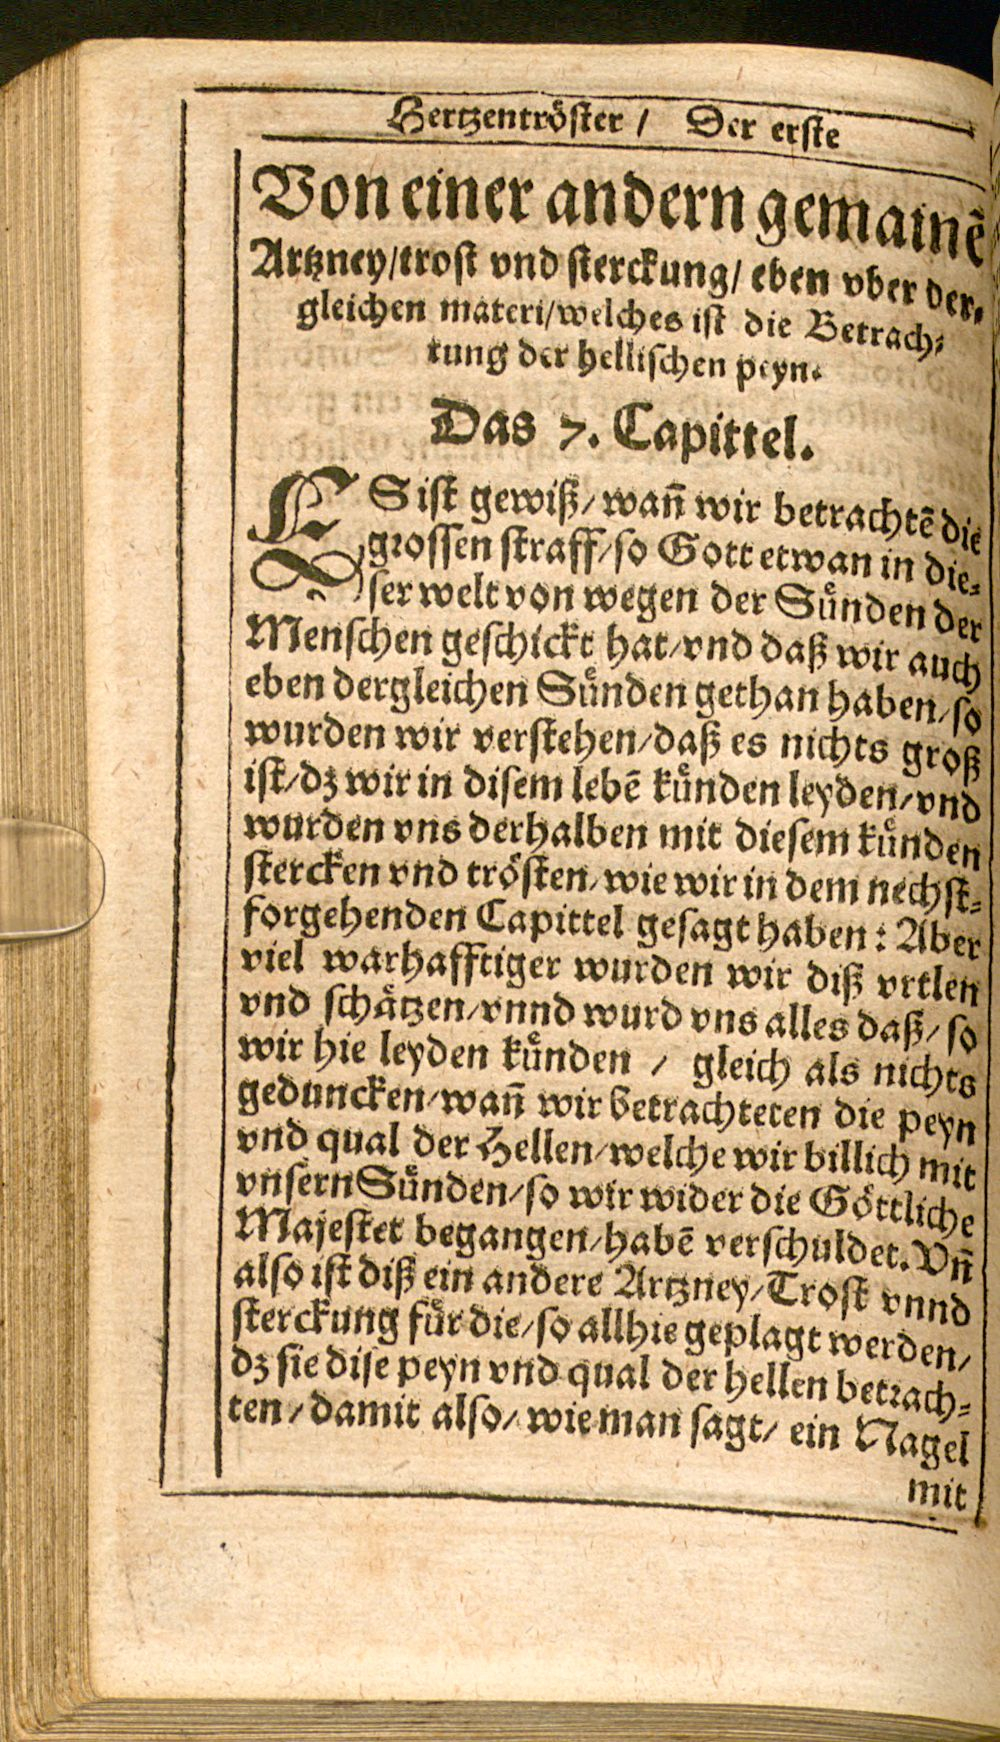 Hertzentröster / Der erste
Von einer andern gemainẽ
Artzney/trost vnd sterckung/ eben vber der-
gleichen materi/welches ist die Betrach-
tung der hellischen peyn.
Das 7. Capittel.
ES ist gewiß/wañ wir betrachtẽ die
grossen straff/so Gott etwan in die-
ser welt von wegen der Sünden der
Menschen geschickt hat/vnd daß wir auch
eben dergleichen Sünden gethan haben/so
wurden wir verstehen/daß es nichts groß
ist/dz wir in disem lebẽ künden leyden/vnd
wurden vns derhalben mit diesem künden
stercken vnd trösten/wie wir in dem nechst-
forgehenden Capittel gesagt haben: Aber
viel warhafftiger wurden wir diß vrtlen
vnd schätzen/vnnd wurd vns alles daß/so
wir hie leyden künden / gleich als nichts
geduncken/wañ wir betrachteten die peyn
vnd qual der Hellen/welche wir billich mit
vnsern Sünden/so wir wider die Göttliche
Majestet begangen/habẽ verschuldet. Vñ
also ist diß ein andere Artzney/Trost vnnd
sterckung für die/so allhie geplagt werden/
dz sie dise peyn vnd qual der hellen betrach-
ten/damit also/wie man sagt/ ein Nagel
mit